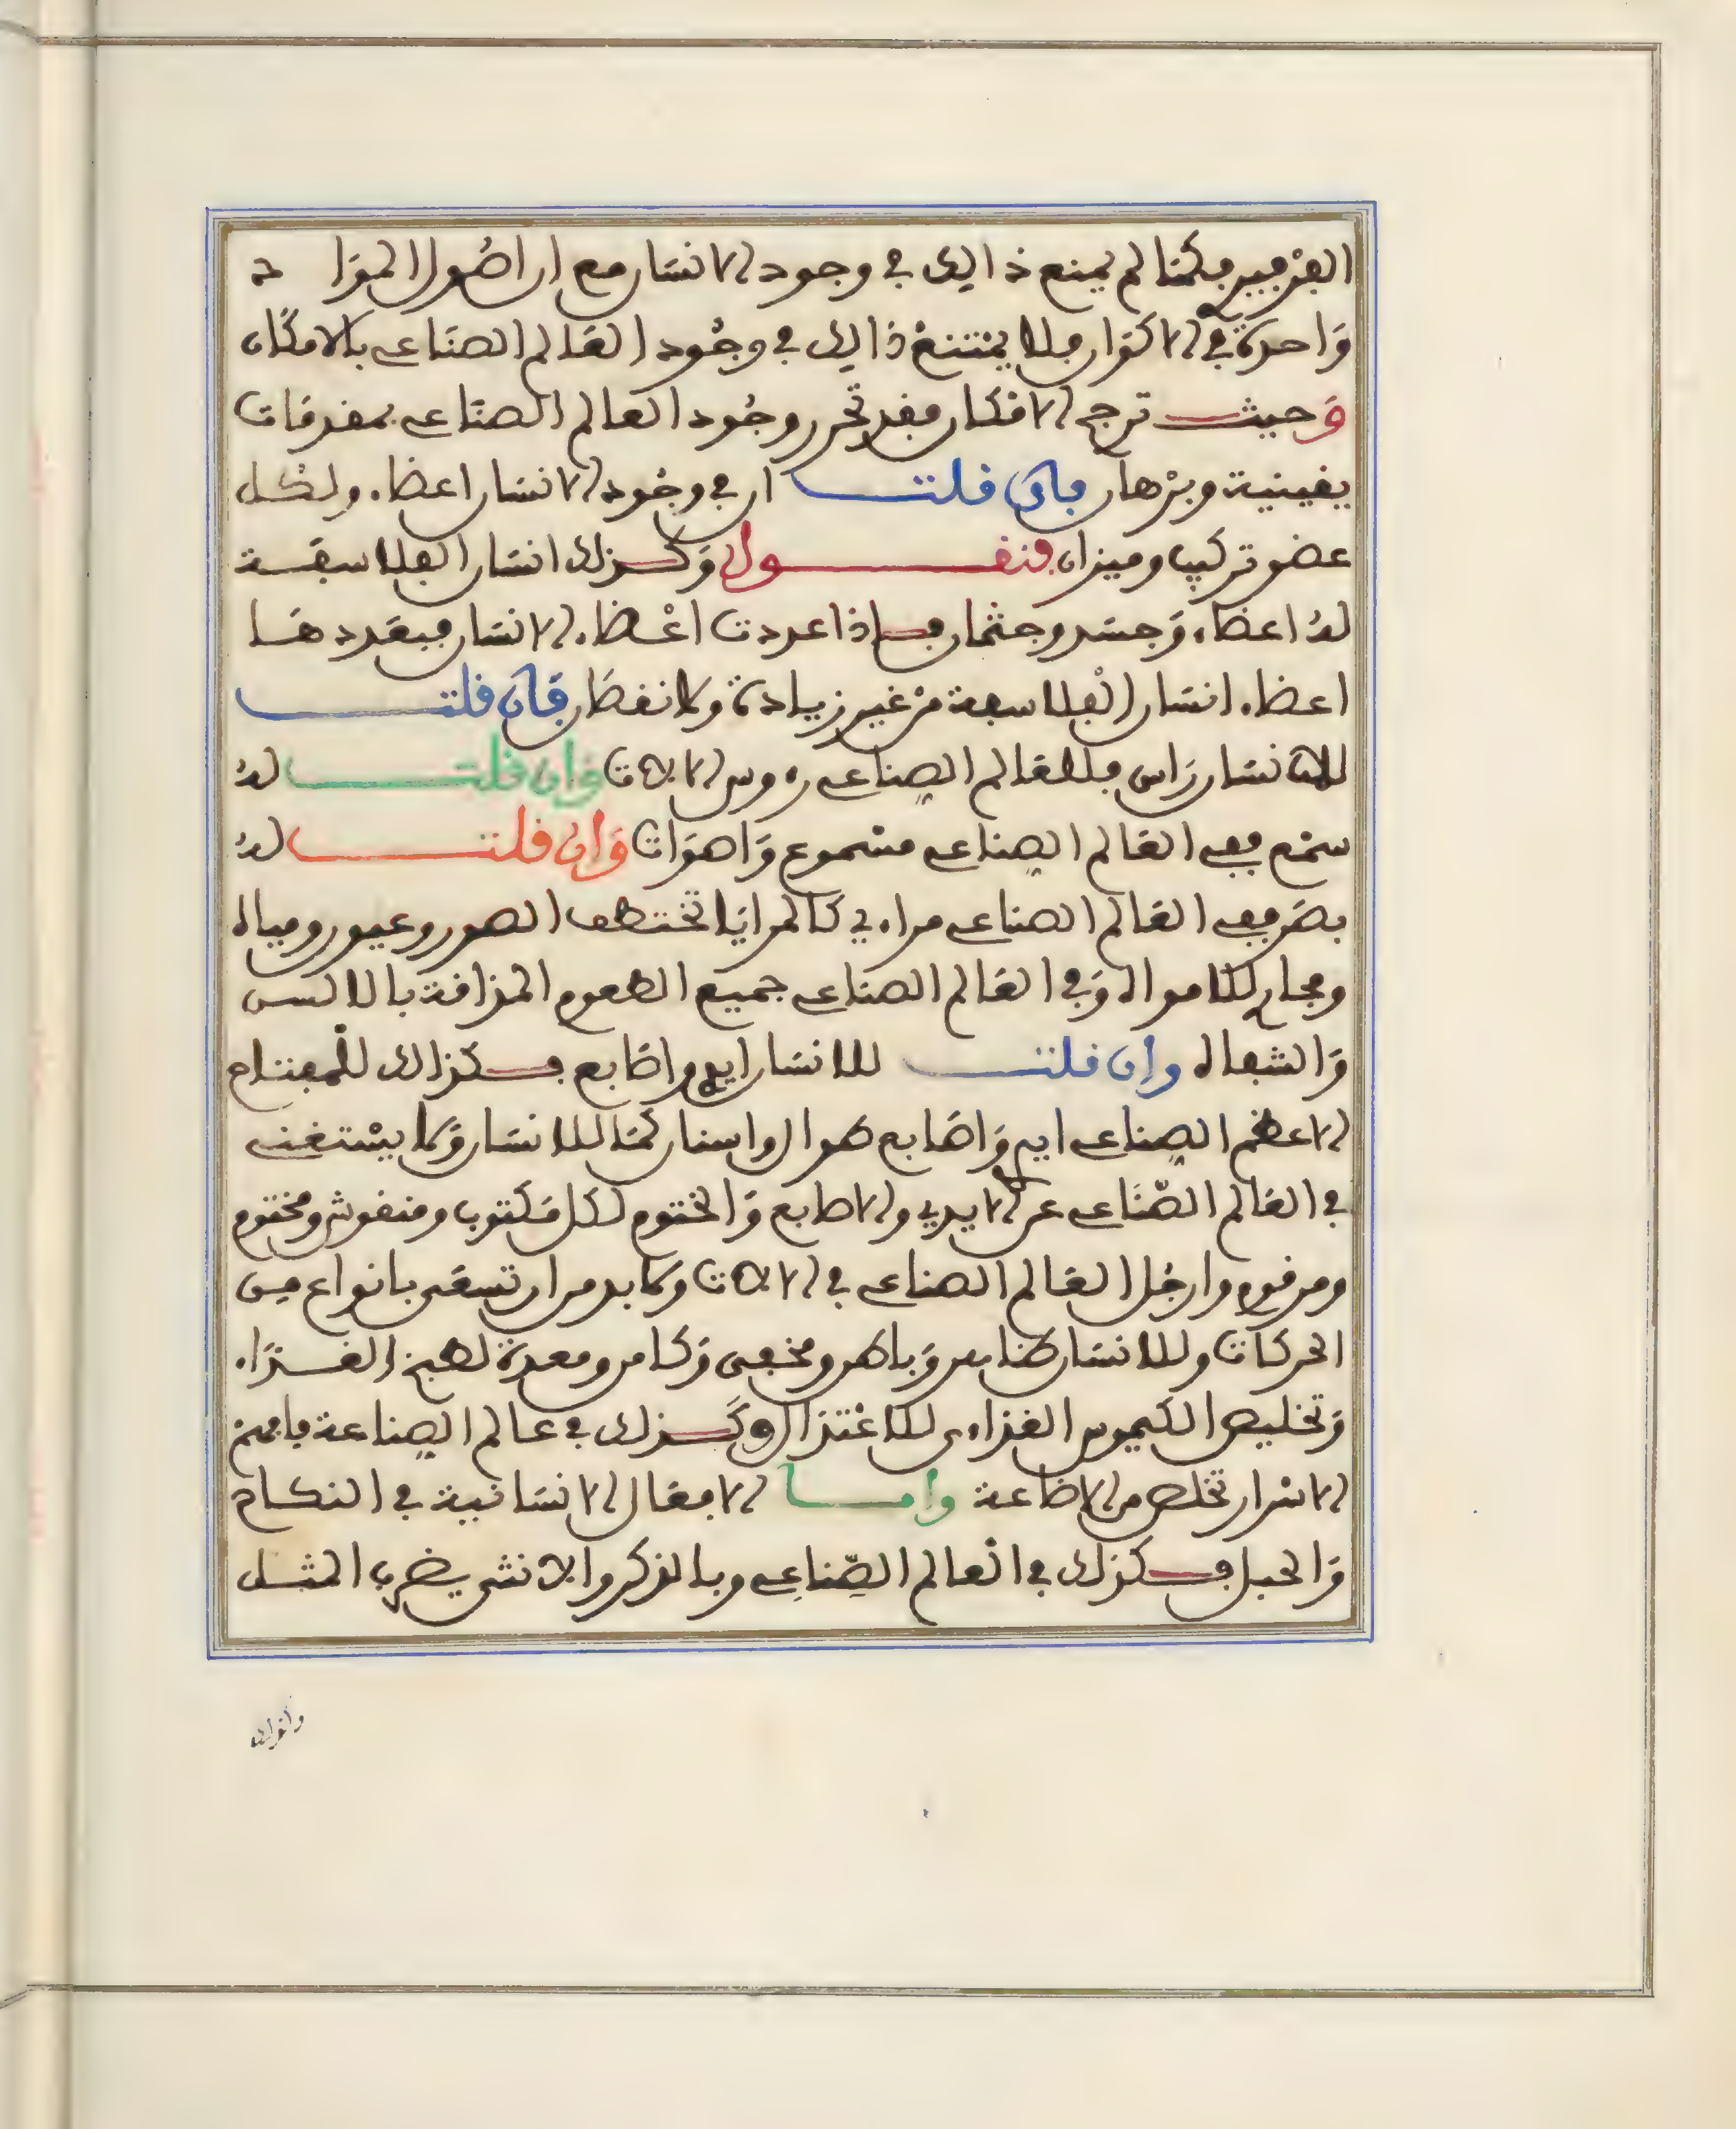 الفرقيين فكمالم يمنع ذالك في وجود الانسان مع ان اصول المواد
واحدة في الاكوان فلا يمتنع ذالك في وجود العالم الصناعي بالامكان
وحيث ترجح الافكار فقد تحرر وجود العالم الصناعي بمقدمات
يقينية وبرهان فان قلت ان في وجود الانسان اعضاء ولكل
عضو تركيب وميزان فنقول وكذلك انسان الفلاسفة
له اعضاء وجسد وجثمان فاذا عددت اعضاء الانسان فبعددها
اعضاء انسان الفلاسفة من غير زيادة ولا نقصان فان قلت
للانسان راس فللعالم الصناعي روس الالات وان قلت له
سمع ففي العالم الصناعي مسموع واصوات وان قلت له
بصر ففي العالم الصناعي مراءي كالمرايا تختطف الصور وعيون ومياه
ومجار للامواه وفي العالم الصناعي جميع الطعوم المذاقة بالالسن
والشفاه وان قلت للانسان ايد واصابع فكذالك للمفتاح
الاعظم الصناعي ايد واصابع طوال واسنان كما للانسان ولا يستغنى
في العالم الصناعي عن الايدي والاصابع والختوم لكل مكتوب ومنقوش ومختوم
ومرقوم وارجل العالم الصناعي في الالات ولا بد من ان تسعى بانواع من
الحركات وللانسان ظاهر وباطن ومخفى وكامن ومعدة لطبخ الغذاء
وتخليص الكيموس الغذاءي للاغتذا وكذلك في عالم الصناعة فافهم
الاسرار تخلص من الاضاعة واما الافعال الانسانية في النكاح
والحبل فكذلك في العالم الصناعي وبالذكر والانثى يضرب المثل